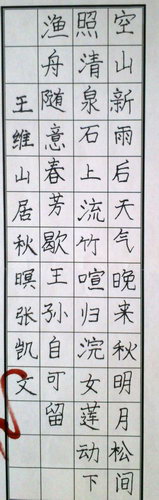 空山新雨后天气晚来秋明月松间
照清泉石上流竹喧归浣女莲动下
渔舟随意春芳歇王孙自可留
王维山居秋暝张凯文